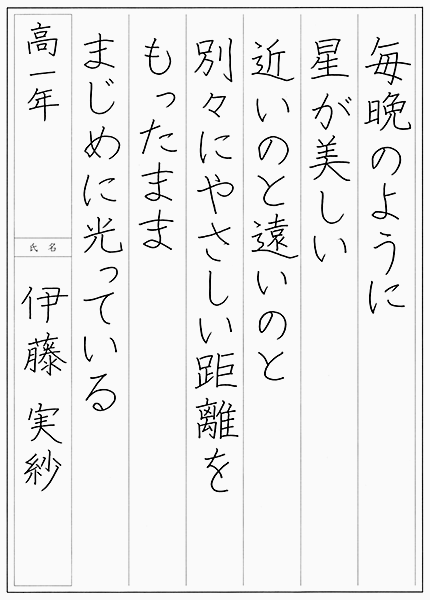 毎晩のように
星が美しい
近いのと遠いのと
別々にやさしい距離を
もったまま
まじめに光っている
高一年
氏名
伊藤実紗